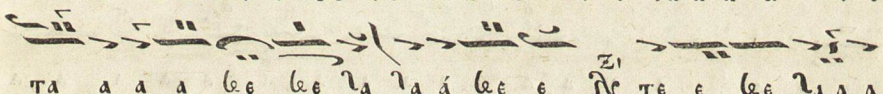 τα α α α ϐε ϐε λα λα ά ϐε ε λε τε ε ε ϐε λα α α